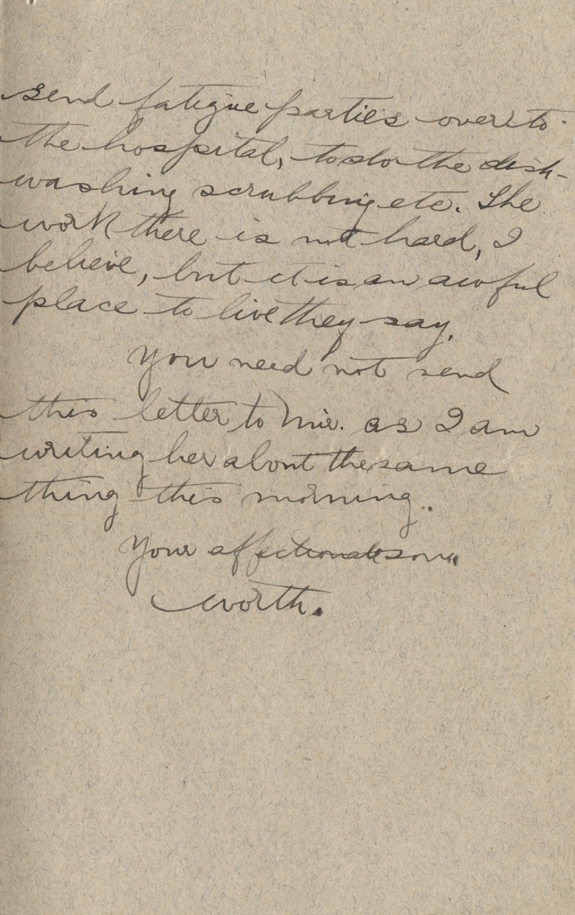 send fatigue parties over to
the hospital, to do the dish-
washing scrubbing etc. The
work there is not hard, I
believe, but it is an awful
place to live they say.
You need not send
this letter to Mir. as I am
writing her about the same
thing this morning.
Your affectionate son,
Worth.